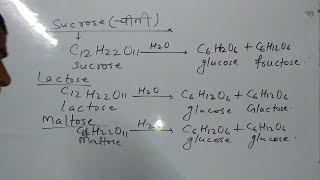 Sucrose (चीनी)
C12H22O11 —H2O→ C6H2O6 + C6H12O6
sucrose glucose fructose.
Lactose
C12H22O11 —H2O→ C6H12O6 + C6H12O6
Lactose glucose Glactose.
Maltose
H22O11 —H2→ C6H12O6 + C6H12O6
Maltose glucose glucose.